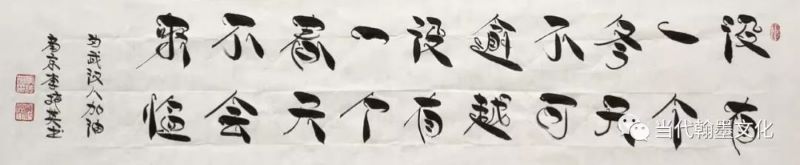 没有
一个
冬天
不可
逾越
没有
一个
春天
不会
来临
为武汉人加油
南京李
当代翰墨文化